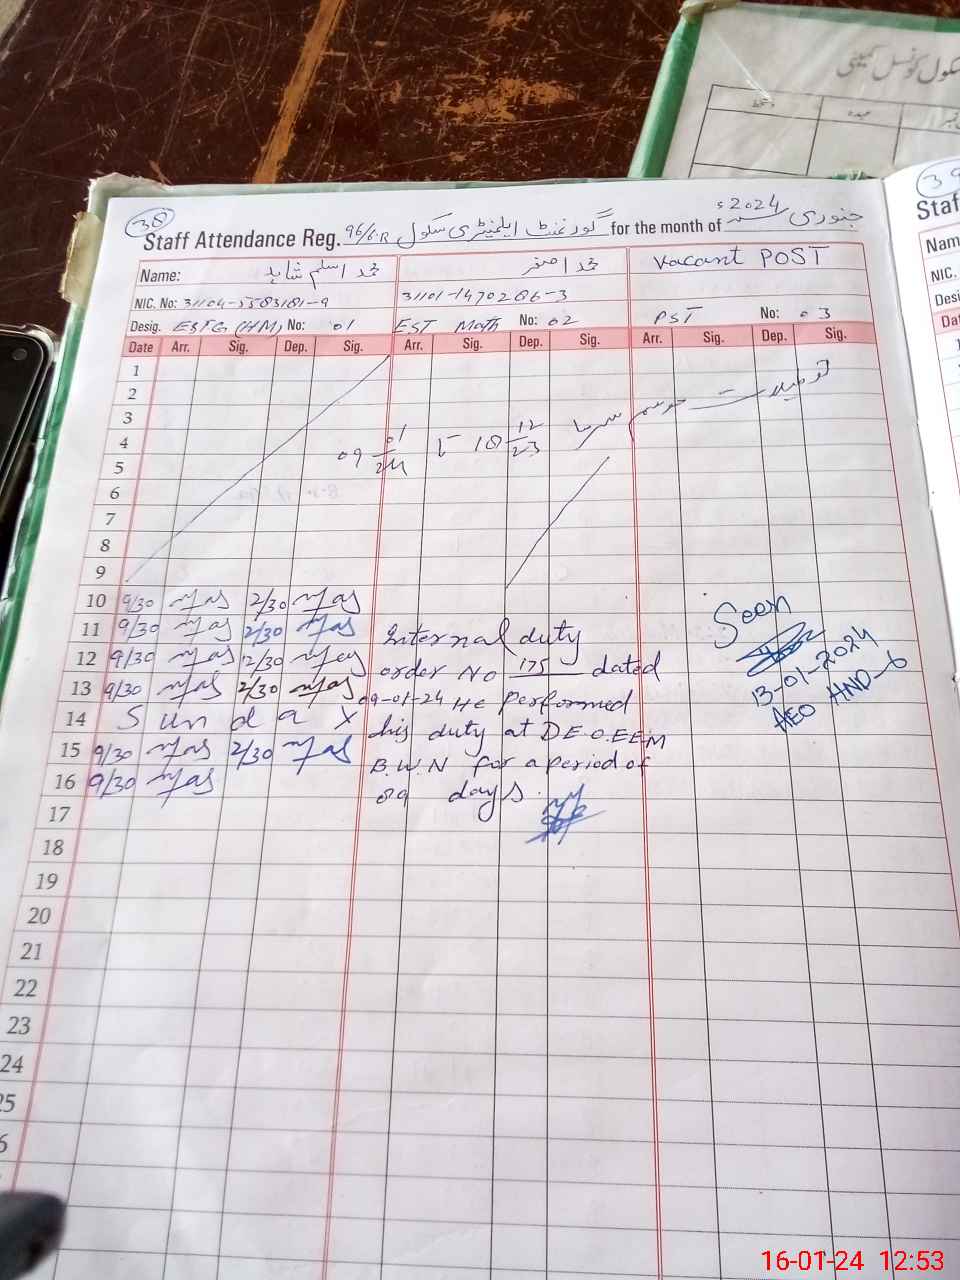 سکول کونسل کمیٹی
دستخط
عہدہ
38
39
Staff Attendance Reg. گورنمنٹ ایلیمنٹری سکول 96/6.R for the month of جنوری 2024ء
Staf
Name: محمد اسلم شاہد
محمد اصغر
Vacant POST
Nam
NIC. No: 31104-5583181-9
31101-1470286-3
NIC.
Desig. ESTG (HM) No: 01
EST Math No: 02
PST No: 03
Desi
Date Arr. Sig. Dep. Sig. Arr. Sig. Dep. Sig. Arr. Sig. Dep. Sig.
Da
1
2
3
تعطیلات موسم سرما 18 12/23 تا 09 01/24
4
5
6
7
8
9
10 9/30 2/30
11 9/30 2/30
12 9/30 12/30
13 9/30 2/30
14 Sunday
15 9/30 2/30
16 9/30
Internal duty
order No 175 dated
09-01-24 He performed
his duty at D.E.O.EEM
B.W.N for a period of
09 days.
Seen
13-01-2024
AEO HND-6
17
18
19
20
21
22
23
24
25
6
16-01-24 12:53